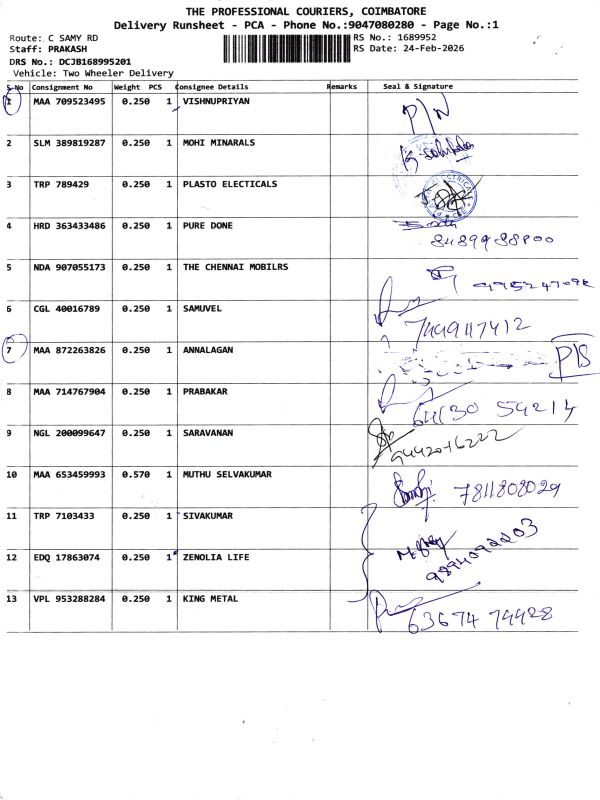 THE PROFESSIONAL COURIERS, COIMBATORE
Delivery Runsheet - PCA - Phone No.:9047080280 - Page No.:1
Route: C SAMY RD
RS No.: 1689952
Staff: PRAKASH
RS Date: 24-Feb-2026
DRS No.: DCJB168995201
Vehicle: Two Wheeler Delivery
S.No Consignment No Weight PCS Consignee Details Remarks Seal & Signature
1 MAA 709523495 0.250 1 VISHNUPRIYAN P/N
2 SLM 389819287 0.250 1 MOHI MINARALS
3 TRP 789429 0.250 1 PLASTO ELECTICALS
4 HRD 363433486 0.250 1 PURE DONE
5 NDA 907055173 0.250 1 THE CHENNAI MOBILRS
6 CGL 40016789 0.250 1 SAMUVEL
7 MAA 872263826 0.250 1 ANNALAGAN
8 MAA 714767904 0.250 1 PRABAKAR
9 NGL 200099647 0.250 1 SARAVANAN
10 MAA 653459993 0.570 1 MUTHU SELVAKUMAR 7811808029
11 TRP 7103433 0.250 1 SIVAKUMAR
12 EDQ 17863074 0.250 1 ZENOLIA LIFE 9894092203
13 VPL 953288284 0.250 1 KING METAL 63674 74428